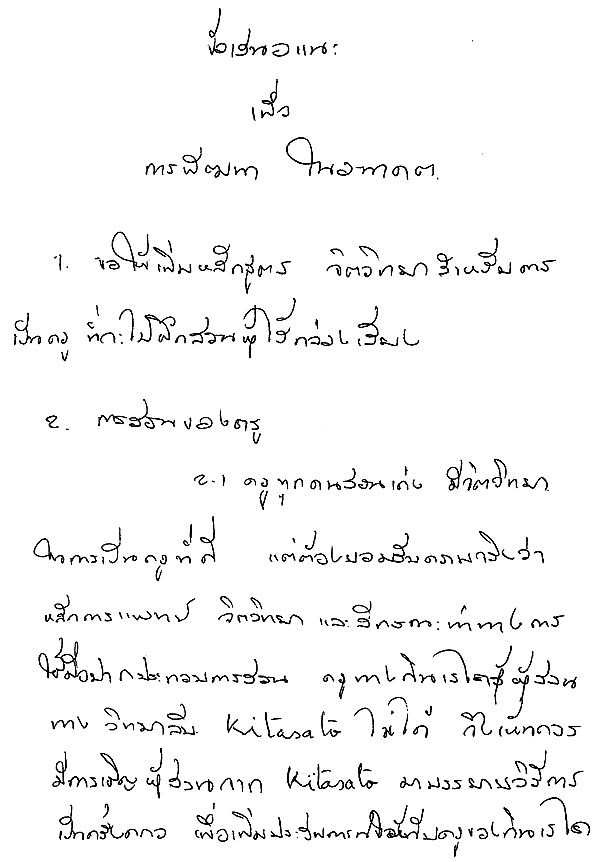 ข้อเสนอแนะ
เพื่อ
การพัฒนา ในอนาคต.
1. ขอให้เพิ่มหลักสูตร จิตวิทยาสำหรับการ
เป็นครู ที่จะไปฝึกสอนผู้ไร้กล่องเสียง
2. การสอนของครู
2.1 ครูทุกคนสอนเก่ง มีจิตวิทยา
ในการเป็นครูที่ดี แต่ต้องยอมรับความจริงว่า
หลักการแพทย์ จิตวิทยา และลักษณะท่าทางการ
ใช้มือปากประกอบการสอน ครูทางเกินเรโดสู้ผู้สอน
ทางวิทยาลัย Kitasato ไม่ได้ จึงเห็นควร
มีการเชิญผู้สอนจาก Kitasato มาบรรยายวิธีการ
เป็นครั้งคราว เพื่อเพิ่มประสบการณ์ให้กับครูของกินเรโด